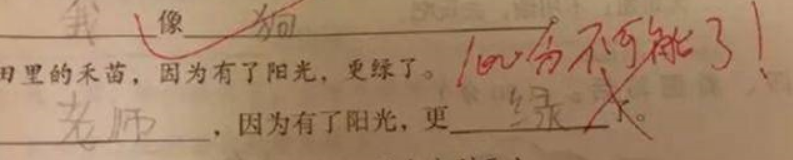 我像狗
100分不可能了！
田里的禾苗，因为有了阳光，更绿了。
老师，因为有了阳光，更绿了。